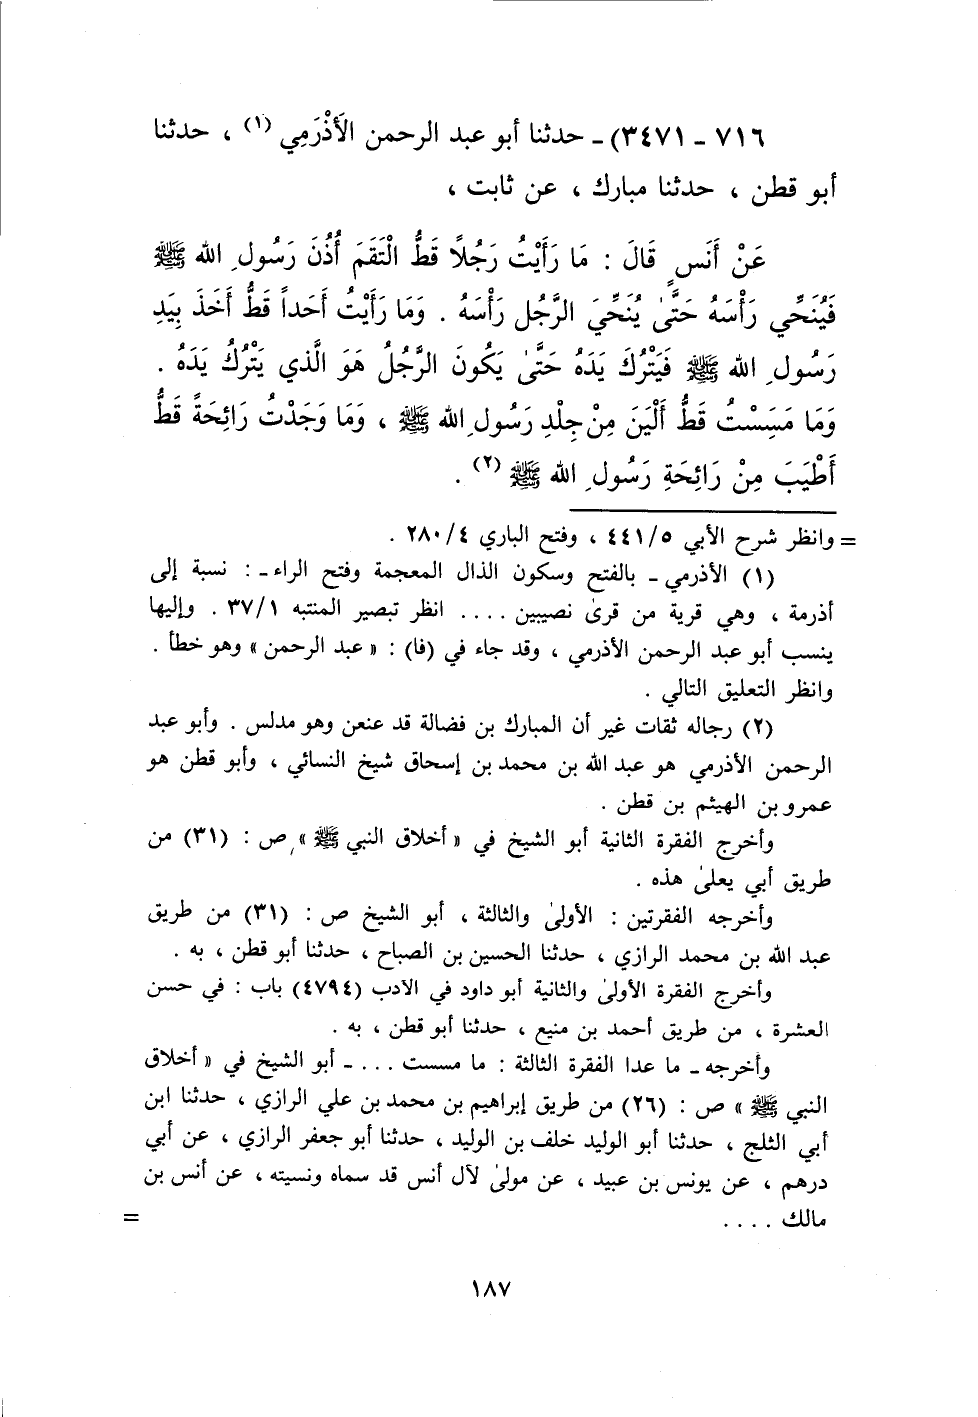 ٧١٦ - ٣٤٧١) - حدثنا أبو عبد الرحمن الأَذْرَمِي (١) ، حدثنا
أبو قطن ، حدثنا مبارك ، عن ثابت ،
عَنْ أَنَسٍ قَالَ : مَا رَأَيْتُ رَجُلاً قَطُّ الْتَقَمَ أُذُنَ رَسُولِ الله ﷺ
فَيُنَحِّي رَأْسَهُ حَتَّىٰ يُنَحِّيَ الرَّجُلُ رَأْسَهُ . وَمَا رَأَيْتُ أَحَداً قَطُّ أَخَذَ بِيَدِ
رَسُولِ الله ﷺ فَيَتْرُكَ يَدَهُ حَتَّىٰ يَكُونَ الرَّجُلُ هَوَ الَّذي يَتْرُكُ يَدَهُ .
وَمَا مَسَِسْتُ قَطُّ أَلْيَنَ مِنْ جِلْدِ رَسُولِ الله ﷺ ، وَمَا وَجَدْتُ رَائِحَةً قَطُّ
أَطْيَبَ مِنْ رَائِحَةِ رَسُولِ الله ﷺ (٢) .
= وانظر شرح الأبي ٤٤١/٥ ، وفتح الباري ٢٨٠/٤ .
(١) الأذرمي - بالفتح وسكون الذال المعجمة وفتح الراء - : نسبة إلى
أذرمة ، وهي قرية من قرىٰ نصيبين .... انظر تبصير المنتبه ٣٧/١ . وإليها
ينسب أبو عبد الرحمن الأذرمي ، وقد جاء في (فا) : « عبد الرحمن » وهو خطأ .
وانظر التعليق التالي .
(٢) رجاله ثقات غير أن المبارك بن فضالة قد عنعن وهو مدلس . وأبو عبد
الرحمن الأذرمي هو عبد الله بن محمد بن إسحاق شيخ النسائي ، وأبو قطن هو
عمرو بن الهيثم بن قطن .
وأخرج الفقرة الثانية أبو الشيخ في « أخلاق النبي ﷺ » ص : (٣١) من
طريق أبي يعلىٰ هذه .
وأخرجه الفقرتين : الأولىٰ والثالثة ، أبو الشيخ ص : (٣١) من طريق
عبد الله بن محمد الرازي ، حدثنا الحسين بن الصباح ، حدثنا أبو قطن ، به .
وأخرج الفقرة الأولىٰ والثانية أبو داود في الادب (٤٧٩٤) باب : في حسن
العشرة ، من طريق أحمد بن منيع ، حدثنا أبو قطن ، به .
وأخرجه - ما عدا الفقرة الثالثة : ما مسست ... - أبو الشيخ في « أخلاق
النبي ﷺ » ص : (٢٦) من طريق إبراهيم بن محمد بن علي الرازي ، حدثنا ابن
أبي الثلج ، حدثنا أبو الوليد خلف بن الوليد ، حدثنا أبو جعفر الرازي ، عن أبي
درهم ، عن يونس بن عبيد ، عن مولىٰ لآل أنس قد سماه ونسيته ، عن أنس بن
مالك .... =
١٨٧